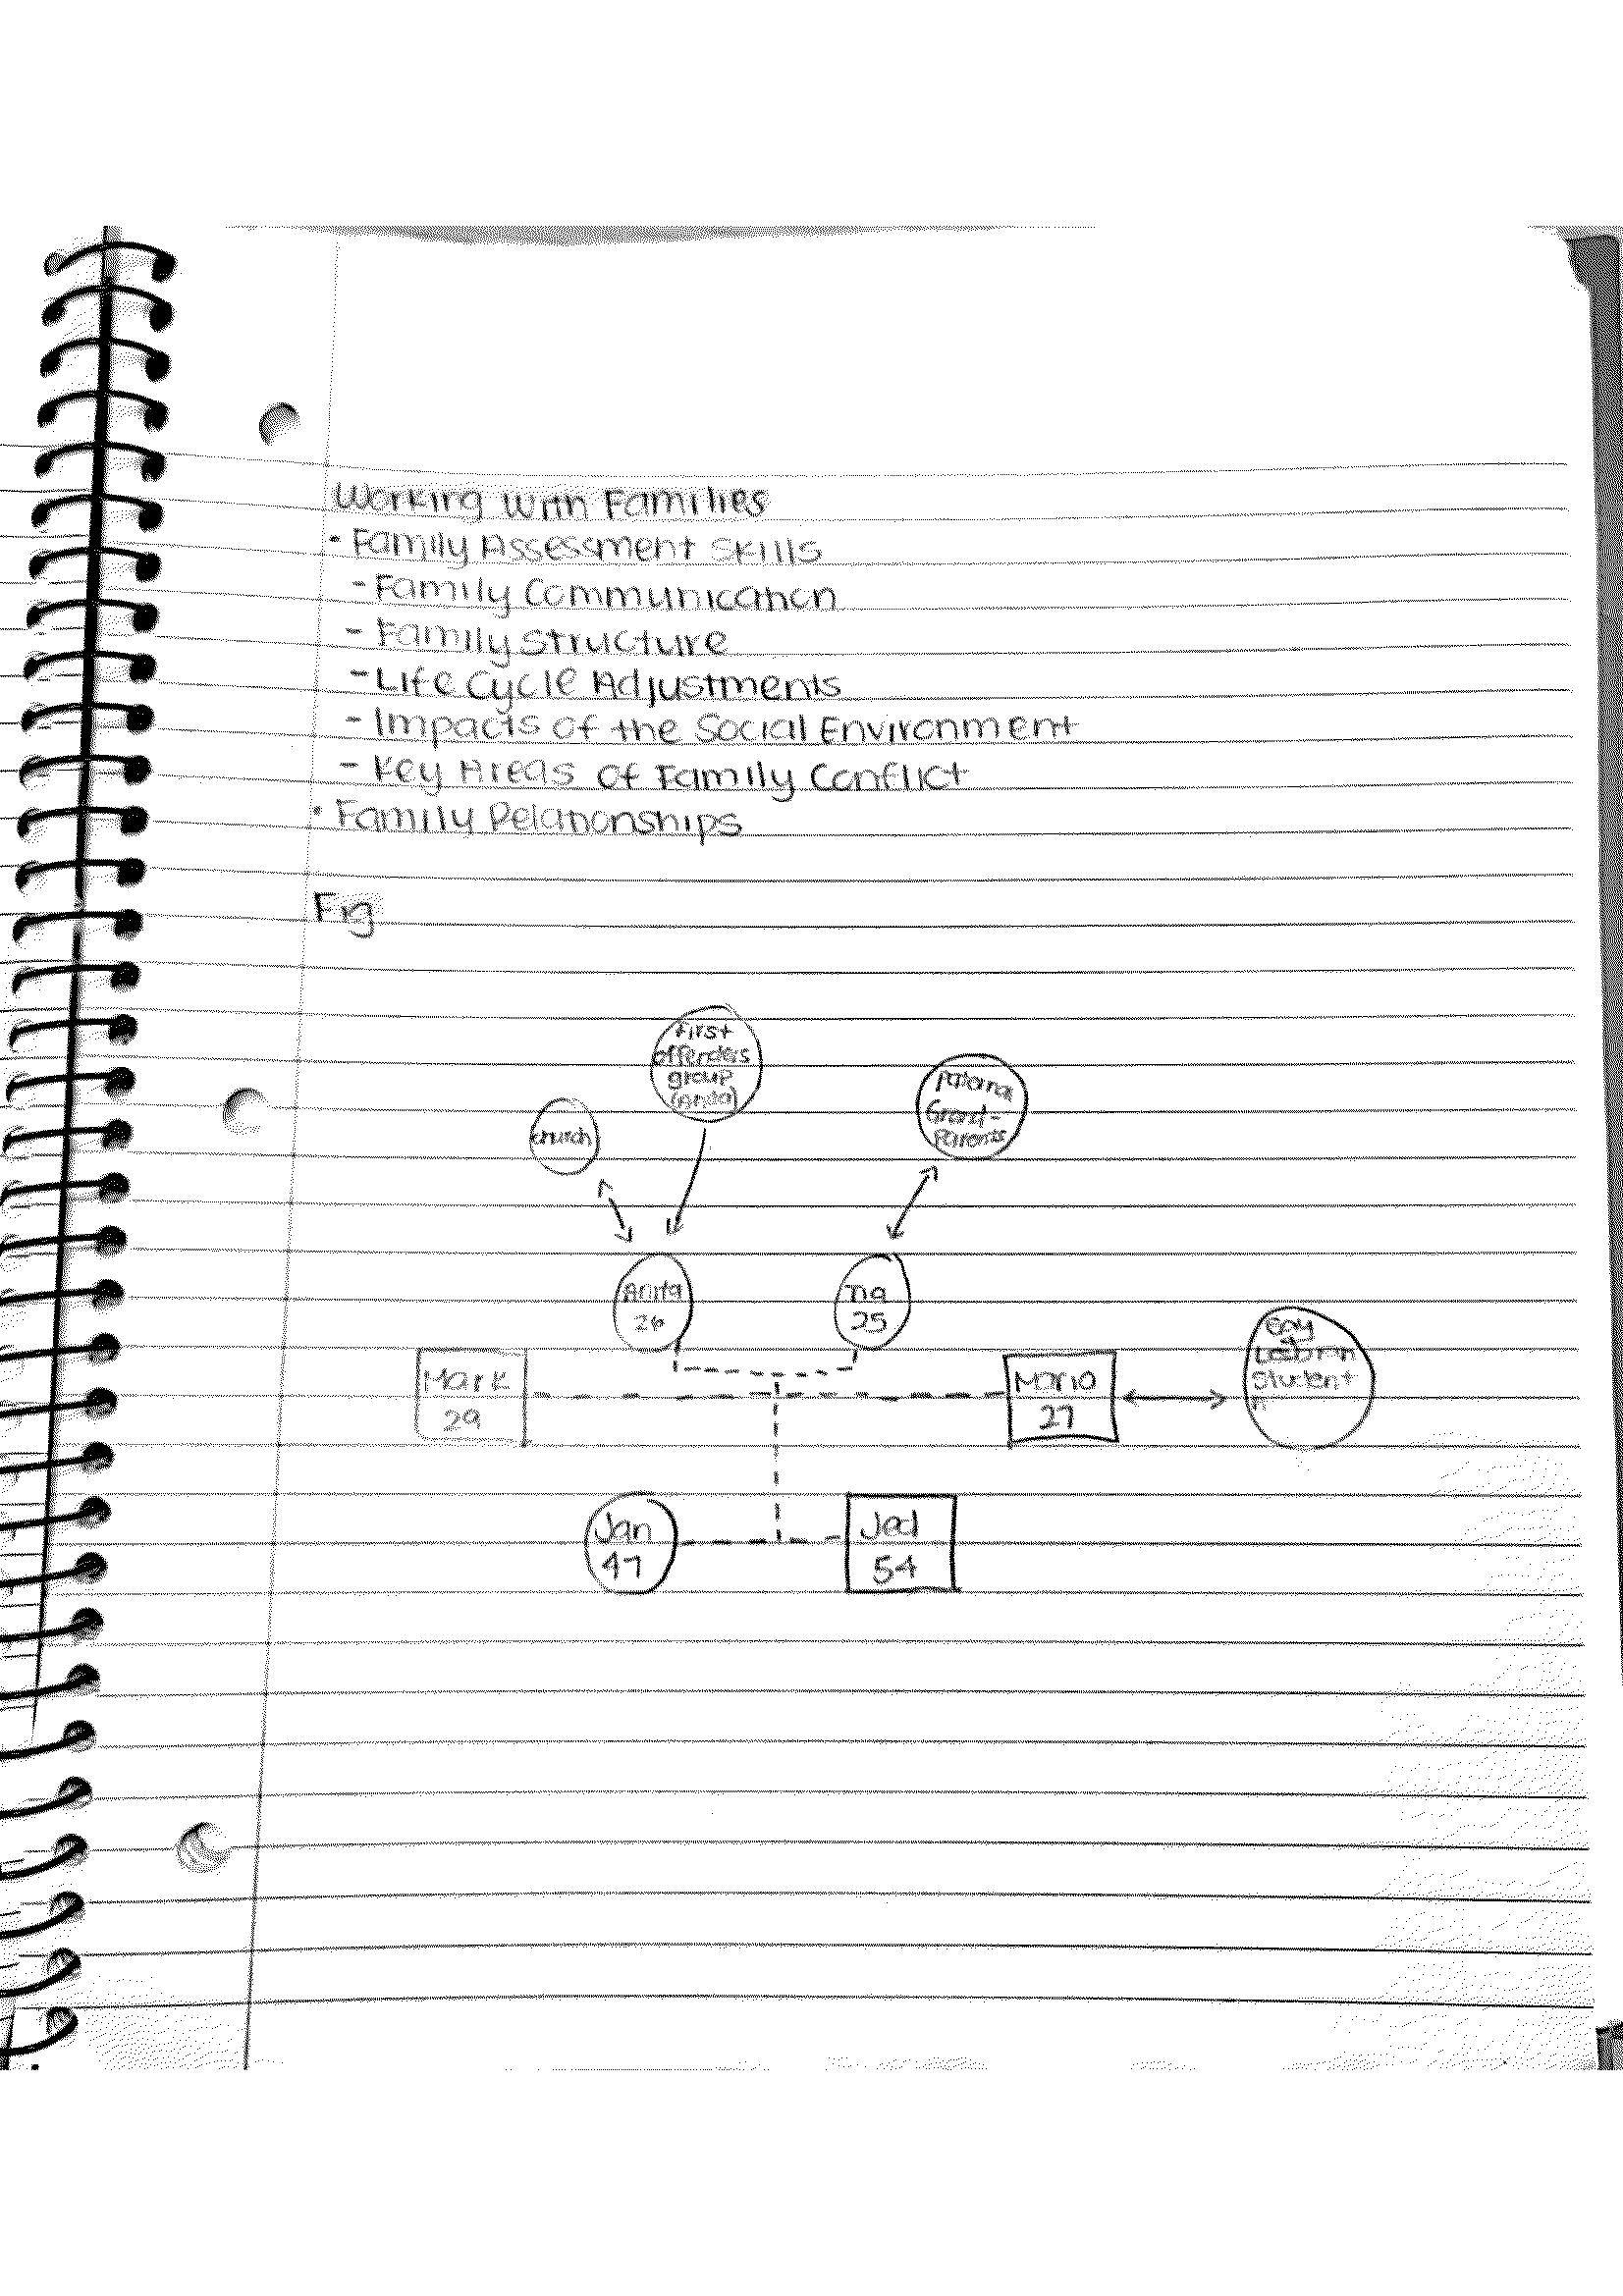 Working With Families
• Family Assessment Skills
- Family Communication
- Family Structure
- Life Cycle Adjustments
- Impacts of the Social Environment
- Key Areas of Family Conflict
• Family Relationships
Fig
First
offenders
group
(Anita)
church
Grand-
Parents
Anita
26
Tina
25
Gay
Lesbian
Student
A
Mark
29
Mario
27
Jan
47
Jed
54